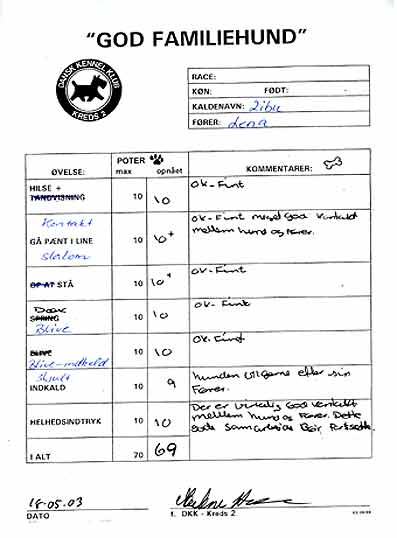 "GOD FAMILIEHUND"
DANSK KENNEL KLUB
KREDS 2
RACE:
KØN: FØDT:
KALDENAVN: Zibu
FØRER: Lena
ØVELSE: POTER max opnået KOMMENTARER:
HILSE + TANDVISNING 10 10 OK - Fint
Kontakt
GÅ PÆNT I LINE 10 10+ OK - Fint meget God kontakt
slalom mellem hund og fører.
OP AT STÅ 10 10+ OK - Fint
Dæk
SPRING 10 10 OK - Fint
Blive
BLIVE 10 10 OK. Fint
Blive - indkald
Skjult
INDKALD 10 9 hunden vil gerne efter sin
Fører.
HELHEDSINDTRYK 10 10 Der er virkelig God kontakt
mellem hund og Fører. Dette
gode samarbejde Bør fortsætte.
I ALT 70 69
18-05.03
DATO f. DKK - Kreds 2